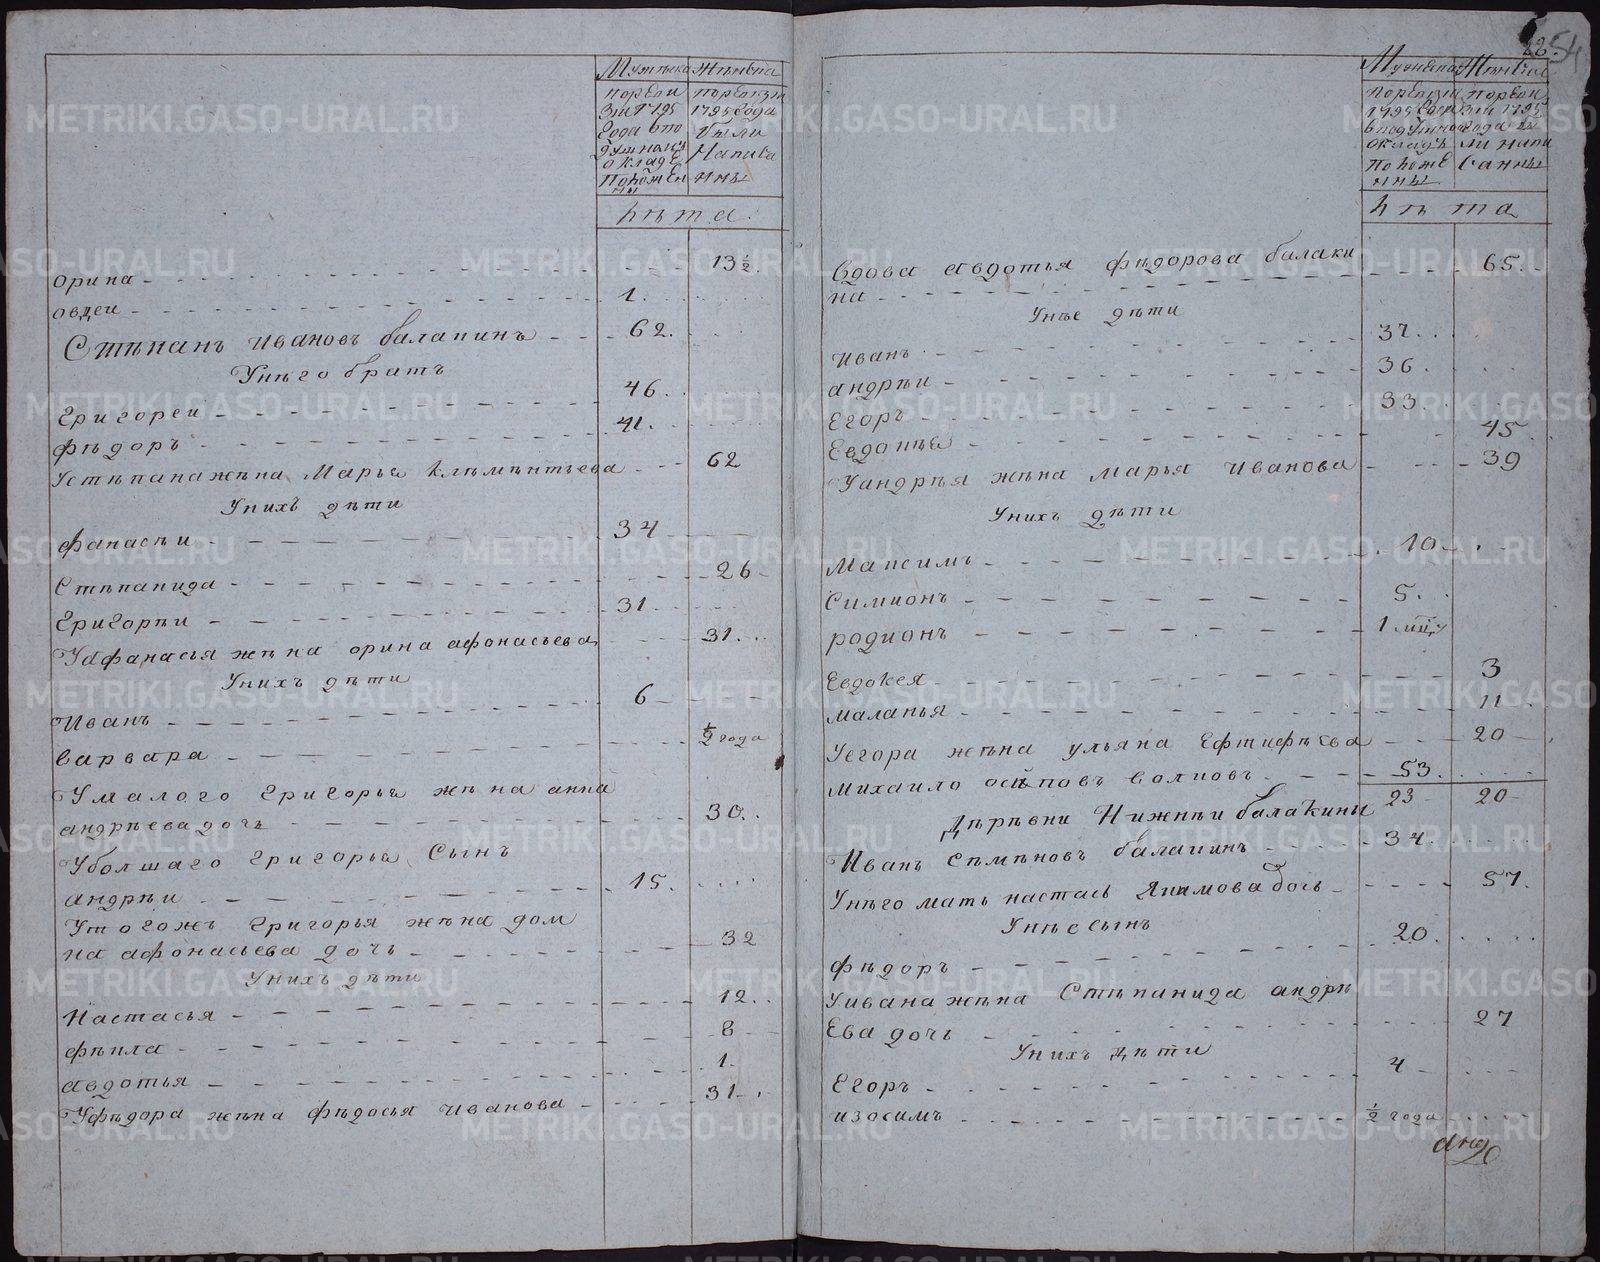 Мужеска
Женска
по реви
зии 1795
года в по
душном
окладе
положен
ны
по ревизии
1795 года
были
написа
нны
лѣта
орина 13 1/2
овдеи 1
Стѣпанъ Ивановъ балапинъ 62
У нѣго братъ
Григореи 46
фѣдоръ 41
У стѣпана жѣна Марья Клѣмѣнтьева 62
У нихъ дѣти
фанасѣи 34
Стѣпанида 26
Григорѣи 31
У афанасья жѣна орина афонасьева 31
У нихъ дѣти
Иванъ 6
варвара 1/2 года
У малого григорья жѣна анна
андрѣева дочь 30
У болшаго григорья сынъ
андрѣи 15
У тогожъ григорья жѣна дом
на афонасьева дочь 32
У нихъ дѣти
Настасья 12
фѣкла 8
авдотья 1
У фѣдора жѣна фѣдосья Иванова 31
28.
54
Мужеска
Женска
по ревизии
1795 году
в подушном
окладѣ
положе
нны
по реви
зии 1795
года бы
ли напи
санны
лѣта
вдова авдотья фѣдорова балаки
на 65
У нѣе дѣти
Иванъ 37
андрѣи 36
Егоръ 33
Евдонья 45
У андрѣя жѣна марья Иванова 39
У нихъ дѣти
Максимъ 10
Симионъ 5
родионъ 1 мцу
Евдокея 3
маланья 11
У егора жѣна ульяна Ефтифѣева 20
михаило осиповъ волковъ 53
23 20
Дѣрѣвни Нижнѣи балакины
Иванъ сѣмѣновъ балапинъ 34
У нѣго мать настась Якимова дочь 57
У нѣе сынъ
фѣдоръ 20
У ивана жѣна Стѣпанида андрѣ
Ева дочь 27
У нихъ дѣти
Егоръ 4
изосимъ 1/2 года
METRIKI.GASO-URAL.RU